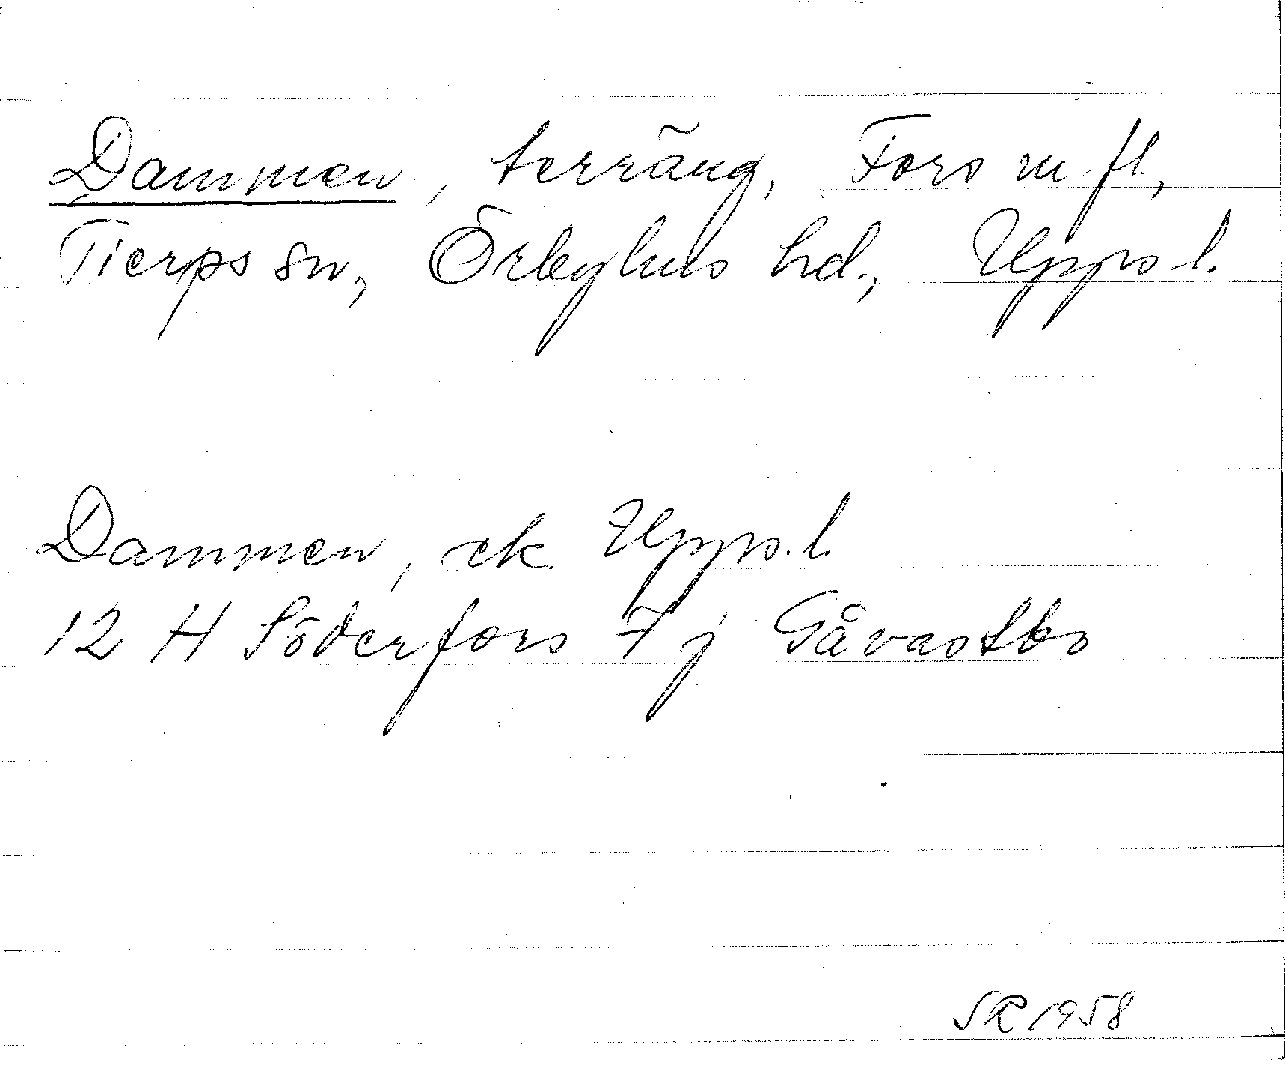 Dammen, terräng, Fors m fl,
Tierps sn, Örbyhus hd, Upps.l.
Dammen, ek. Upps.l.
12 H Söderfors 7 j Gåvastbo
SR 1958